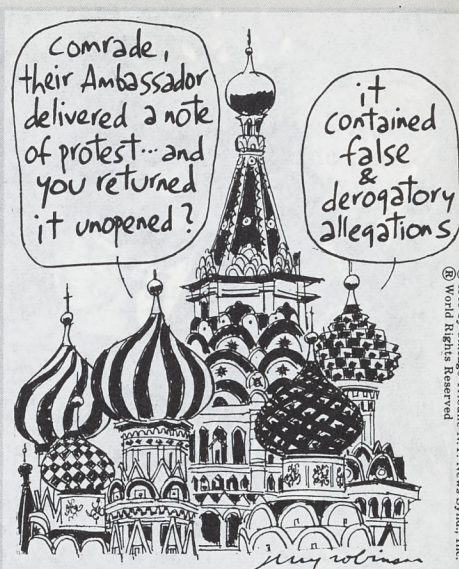 Comrade,
their Ambassador
delivered a note
of protest... and
you returned
it unopened?
it
contained
false
&
derogatory
allegations
jerry robinson
® World Rights Reserved